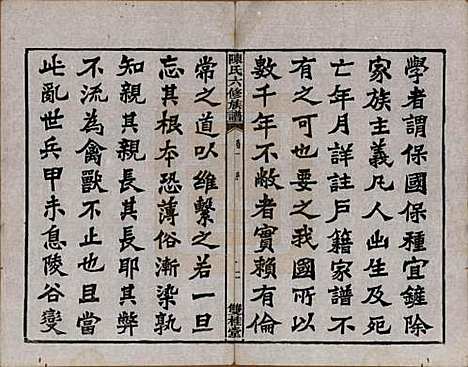 學者謂保國保種宜鏟除
家族主義凡人出生及死
亡年月詳註戶籍家譜不
有之可也要之我國所以
數千年不敝者實賴有倫
陳氏六修族譜
卷一 序
二
雙桂堂
常之道以維繫之若一旦
忘其根本恐薄俗漸染孰
知親其親長其長耶其弊
不流為禽獸不止也且當
此亂世兵甲未息陵谷變